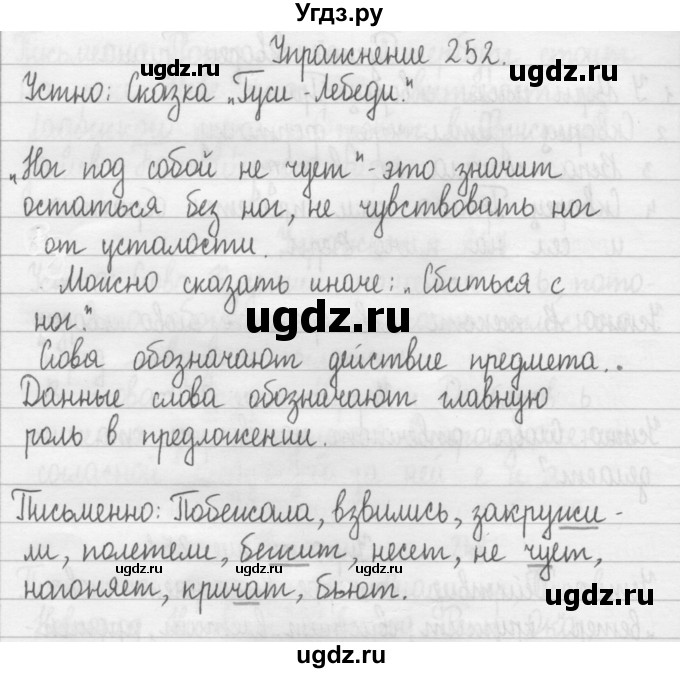 Угдз.ру
Упражнение 252.
Устно: Сказка „Гуси-Лебеди."
ugdz.ru ugdz.ru
„Ног под собой не чует"-это значит
остаться без ног, не чувствовать ног
от усталости.
Можно сказать иначе: „Сбиться с
ног."
ugdz.ru
Слова обозначают действие предмета..
Данные слова обозначают главную
роль в предложении
ugdz.ru ugdz.ru
Письменно: Побежала, взвились, закружи-
ли, полетели, бежит, несет, не чует,
нагоняет, кричат, бьют.
ugdz.ru ugdz.ru
ugdz.ru
ugdz.ru